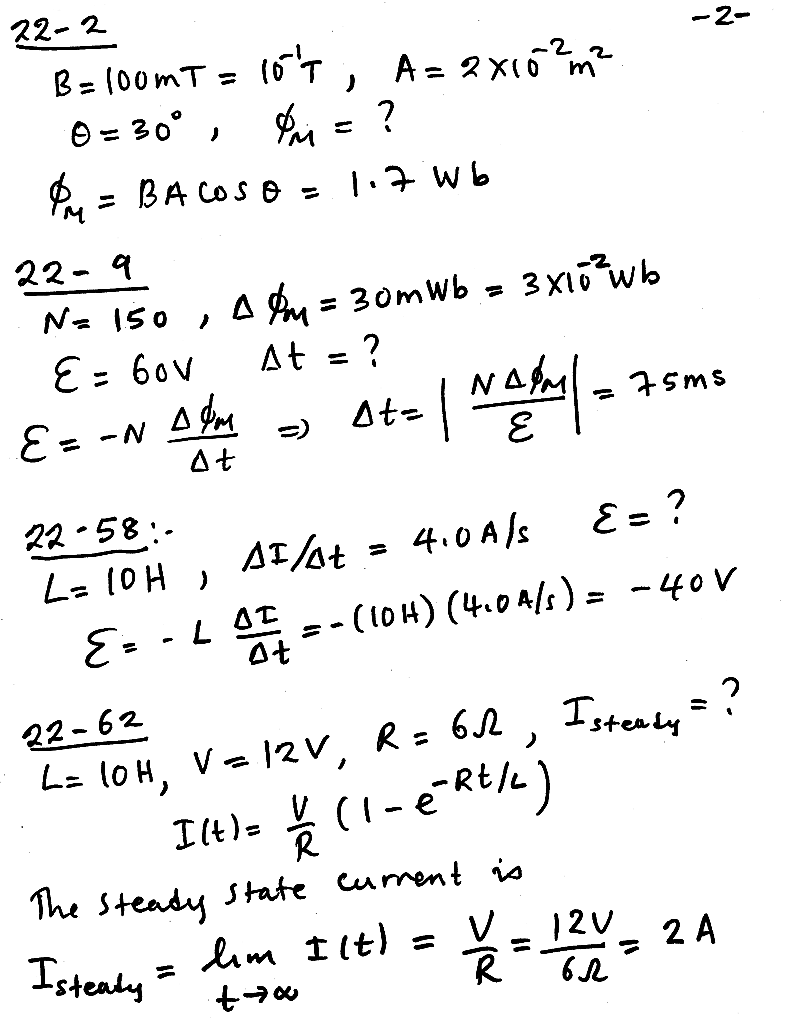 22-2 -2-
B = 100mT = 10⁻¹T , A = 2×10⁻² m²
θ = 30° , ϕ_M = ?
ϕ_M = BA cos θ = 1.7 Wb
22-9
N = 150 , Δϕ_M = 30mWb = 3×10⁻² Wb
Ɛ = 60V Δt = ?
Ɛ = -N Δϕ_M/Δt ⇒ Δt = | NΔϕ_M/Ɛ | = 75ms
22-58:-
L = 10H , ΔI/Δt = 4.0 A/s Ɛ = ?
Ɛ = -L ΔI/Δt = -(10H)(4.0 A/s) = -40V
22-62
L = 10H, V = 12V, R = 6Ω , I_steady = ?
I(t) = V/R (1 - e^(-Rt/L))
The steady state current is
I_steady = lim t→∞ I(t) = V/R = 12V/6Ω = 2A